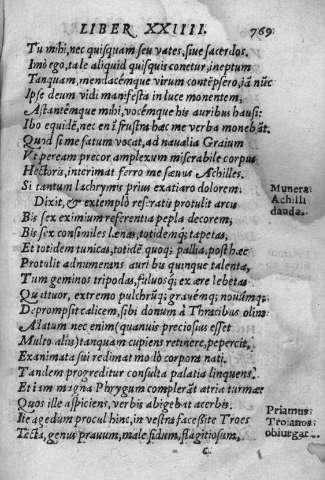 LIBER XXIIII. 769
Tu mihi, nec quisquam seu vates, siue sacerdos.
Imò ego, tale aliquid quisquis conetur, ineptum
Tanquam, mendacémque virum contēpsero, iā nūc
Ipse deum vidi manifesta in luce monentem,
Astantémque mihi, vocémque his auribus hausi:
Ibo equidē, nec en im frustra hæc me verba monebāt.
Quòd si me fatum vocat, ad naualia Graium
Vt peream precor amplexum miserabile corpus
Hectoris, interimat ferro me sæuus Achilles.
Si tantum lachrymis prius exatiaro dolorem.
Dixit, & extemplò reseratis protulit arcis
Munera
Achilli
danda.
Bis sex eximium referentia pepla decorem,
Bis sex consimiles lænas, totidémq; tapetas,
Et totidem tunicas, totidē quoq; pallia, post hæc
Protulit adnumerans auri bis quinque talenta,
Tum geminos tripodas, fuluosq; ex ære lebetas
Quatuor, extremo pulchrūq; grauémq; nouámq;
Depromsit calicem, sibi donum à Thracibus olim
Allatum nec enim (quanuis preciosius esset
Multo alijs) tanquam cupiens retinere, pepercit,
Exanimata sui redimat modò corpora nati.
Tandem progreditur consulta palatia linquens.
Et iam magna Phrygum complerāt atria turmæ
Quos ille aspiciens, verbis abigebat acerbis.
Ite agedum procul hinc, in vestra facessite Troes
Tecta, genus prauum, male fidum, flagitiosum,
Priamus
Troianos
obiurgat.
C.